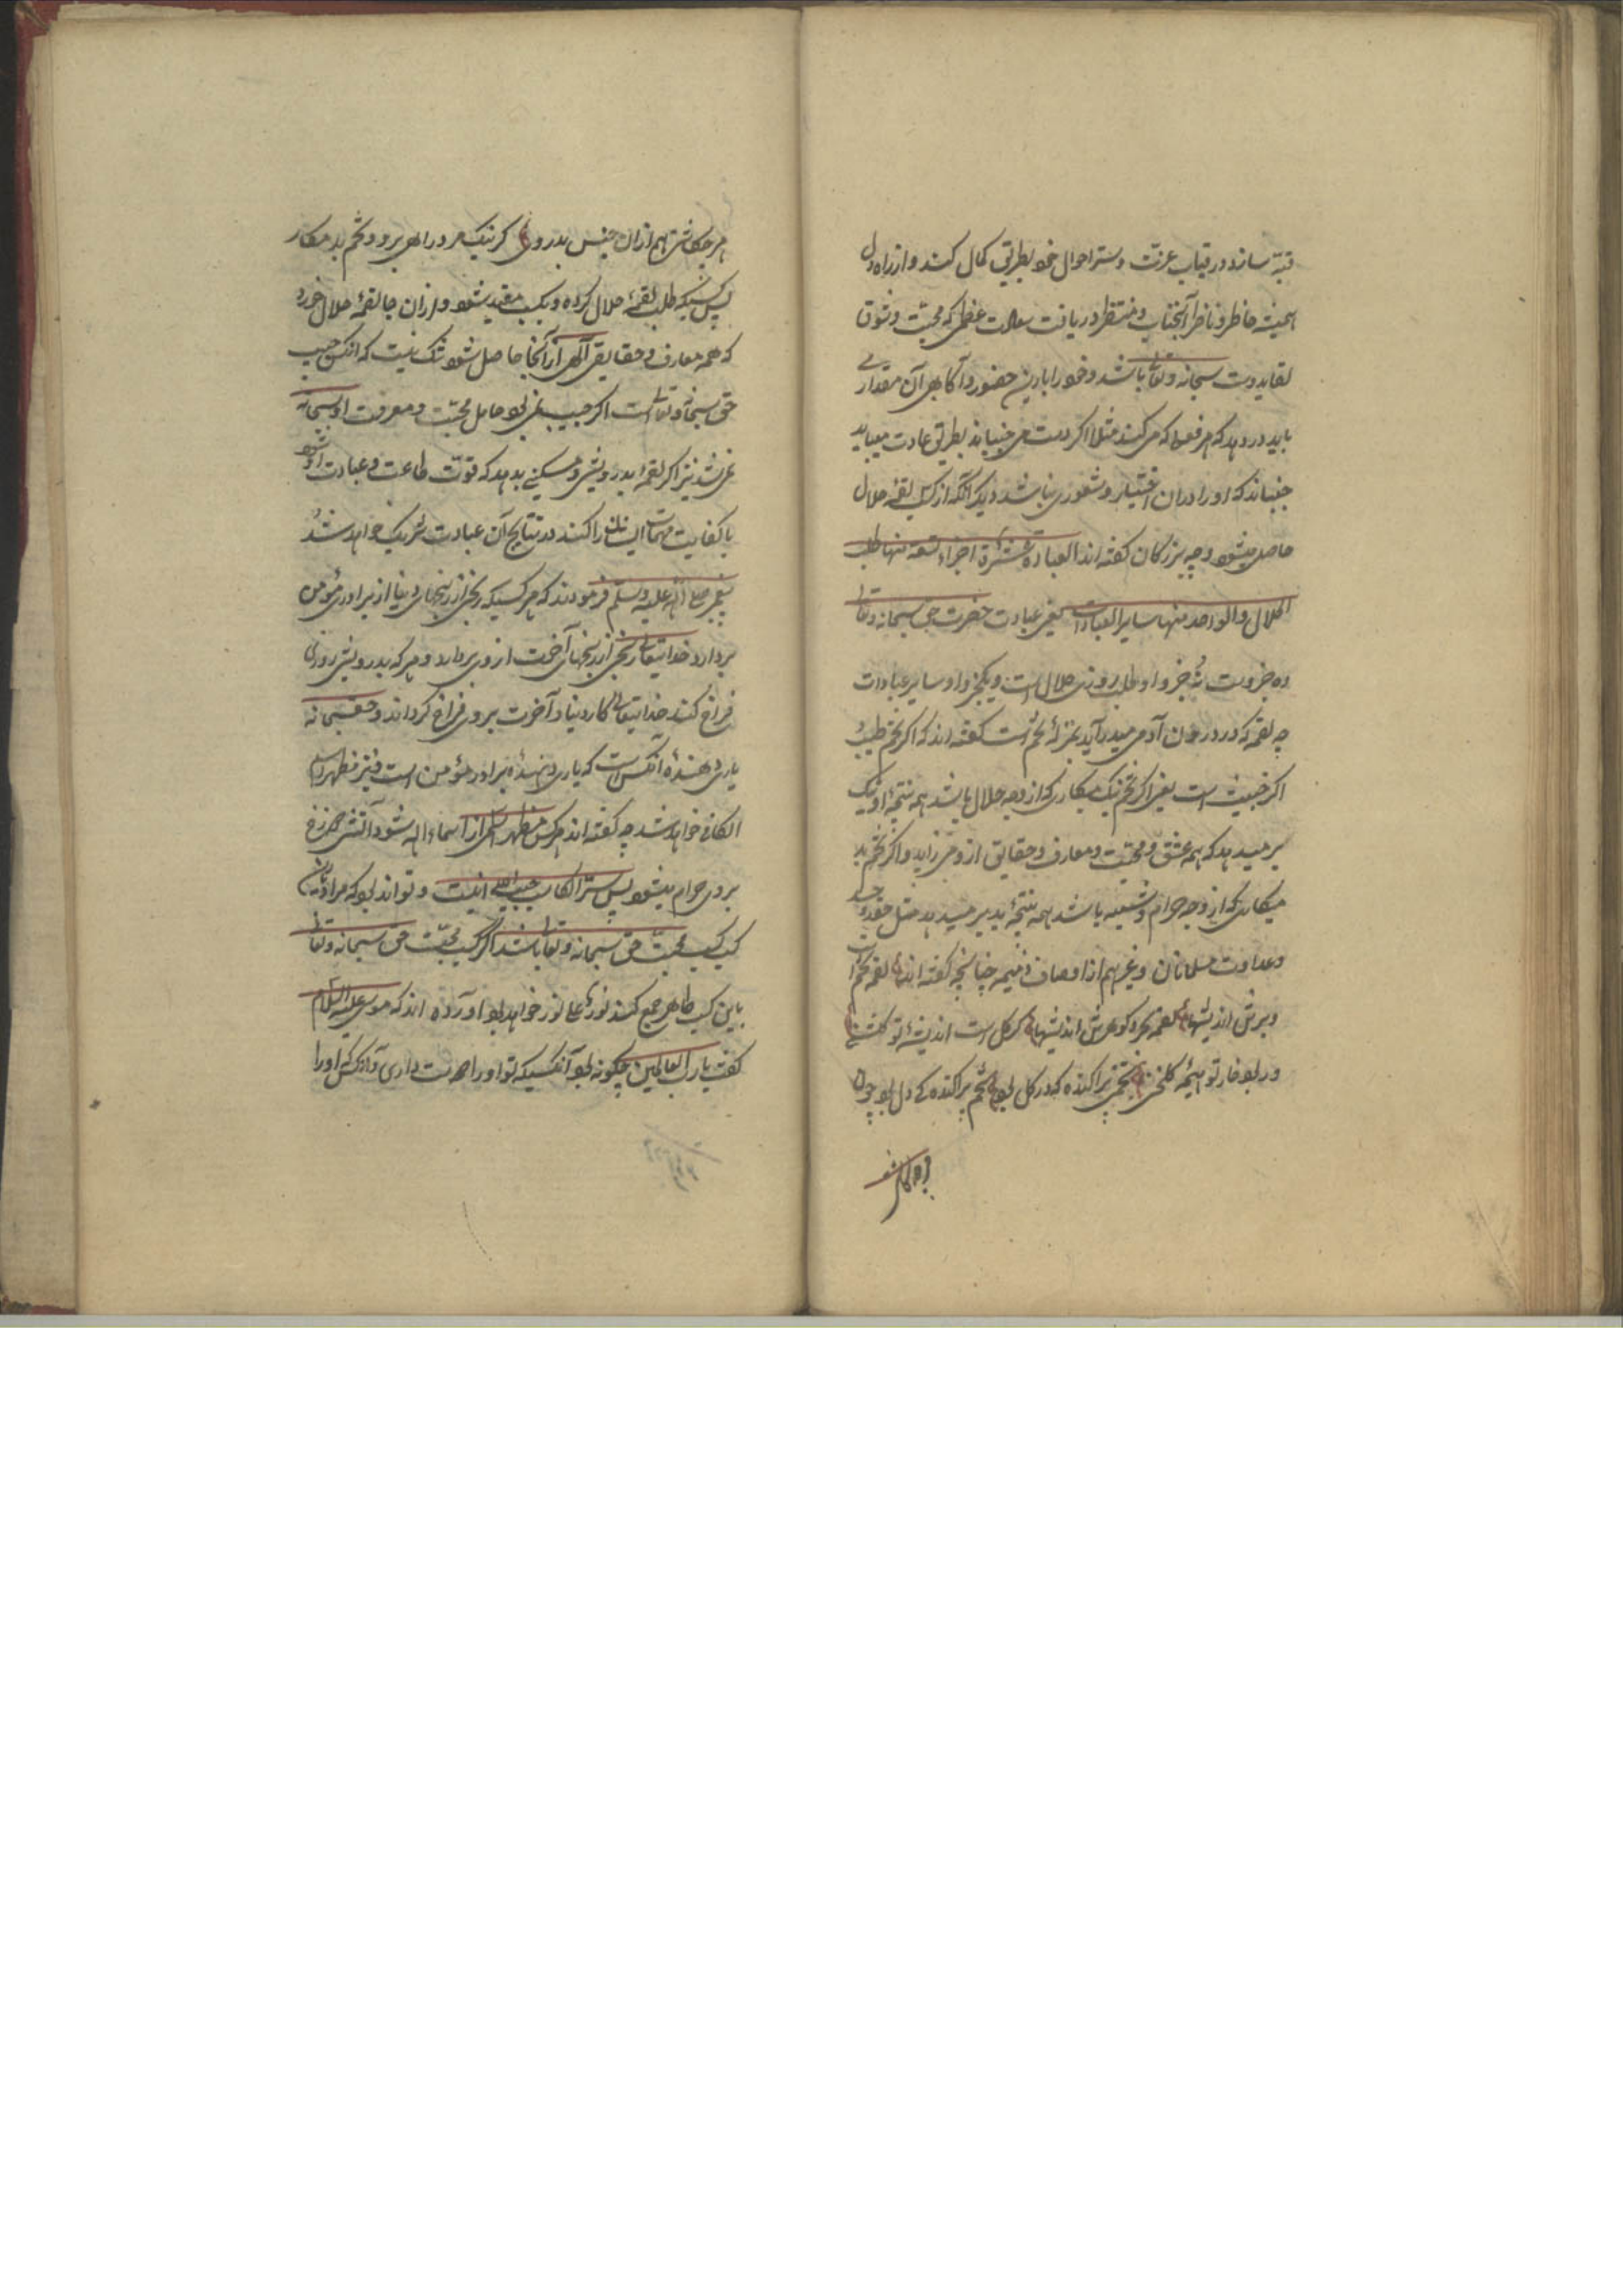 قبه سازد در قباب عزت و ستر احوال خود بطریق کمال کند و از راه دل
همیشه حاضر و ناظر آنجناب و منتظر دریافت سعادت عظمی که محبت و شوق
لقای دوست سبحانه و تعالی باشد و خود را باین حضور و آگاهی آن مقداری
باید در دهد که هر فعلی که می کند مثلا اگر دست می جنباند بطریق عادت میباید
جنباند که او را دران اختیار و شعوری نباشد دیگر آنکه از کسب لقمه حلال
حاصل میشود چه بزرگان گفته اند العبادة عشرة اجزاء تسعة منها طلب
الحلال والواحد منها سایر العبادات یعنی عبادت حضرت حق سبحانه و تعالی
ده جزوست نه جزو او طلب روزی حلال است و یکجزو او سایر عبادات
چه لقمه که در درون آدمی میدرآید بمنزلهٔ تخم است گفته اند که اگر تخم طیب
اگر خبیث است یعنی اگر تخم نیک میکاری که از وجه حلال باشد همه نتیجهٔ او نیک
بر میدهد که همه عشق و محبت و معارف و حقایق ازو می زاید و اگر تخم بد
میکاری که از وجه حرام و شبهه باشد همه نتیجهٔ بد بر میدهد مثل حقد و حسد
و عداوت مسلمانان و غیرهم از اوصاف ذمیمه چنانچه گفته اند لقمه تخم است
و برش اندیشها لقمه بحر و گوهرش اندیشها گر گل است اندیشهٔ تو گلشنی
ور بود خار تو هیمهٔ گلخنی تخمی پراکنده که در گل بود تخم پراکنده کی دل بود چون
هر چه کاش
هر چه کاشتی هم ازان جنس بدروی گر نیک مرو را هی برو و تخم بد مکار
پس کسیکه طلب لقمهٔ حلال کرده و بکسب مقید شود و ازان جا لقمهٔ حلال خورد
که همه معارف و حقایق الهی از آنجا حاصل شود شک نیست که آنکس حبیب
حق سبحانه و تعالی است اگر حبیب نمی بود حامل محبت و معرفت او سبحانه
نمی شد نیز اگر لقمه بدرویشی و مسکینی بدهد که قوت طاعت و عبادت او شود
یا کفایت مهمات ایشان را کند در نتایج آن عبادت شریک خواهد شد
پیغمبر صلی الله علیه وسلم فرمودند که هر کسیکه رنجی از رنجهای دنیا از برادر مؤمن
بردارد خدایتعالی رنجی از رنجهای آخرت از وی بردارد و هر که بدرویش روزی
فراخ کند خدایتعالی کار دنیا و آخرت بروی فراخ گرداند و حق سبحانه
یاری دهندهٔ آنکس است که یاری دهندهٔ برادر مؤمن است و نیز مظهر اسم
الکافی خواهد شد چه گفته اند هر کس مظهر اسمی از اسماء اله شود آتش دوزخ
بروی حرام میشود پس سر الکاسب حبیب الله اینست و تواند بود که مراد ازین
کسب کسب محبت حق سبحانه و تعالی باشد اگر کسب محبت حق سبحانه و تعالی
باین کسب ظاهر جمع کند نور علی نور خواهد بود آورده اند که موسی علیه السلام
گفت یا رب العالمین چگونه بود آنکسیکه تو او را دوست داری و آنکس که او را